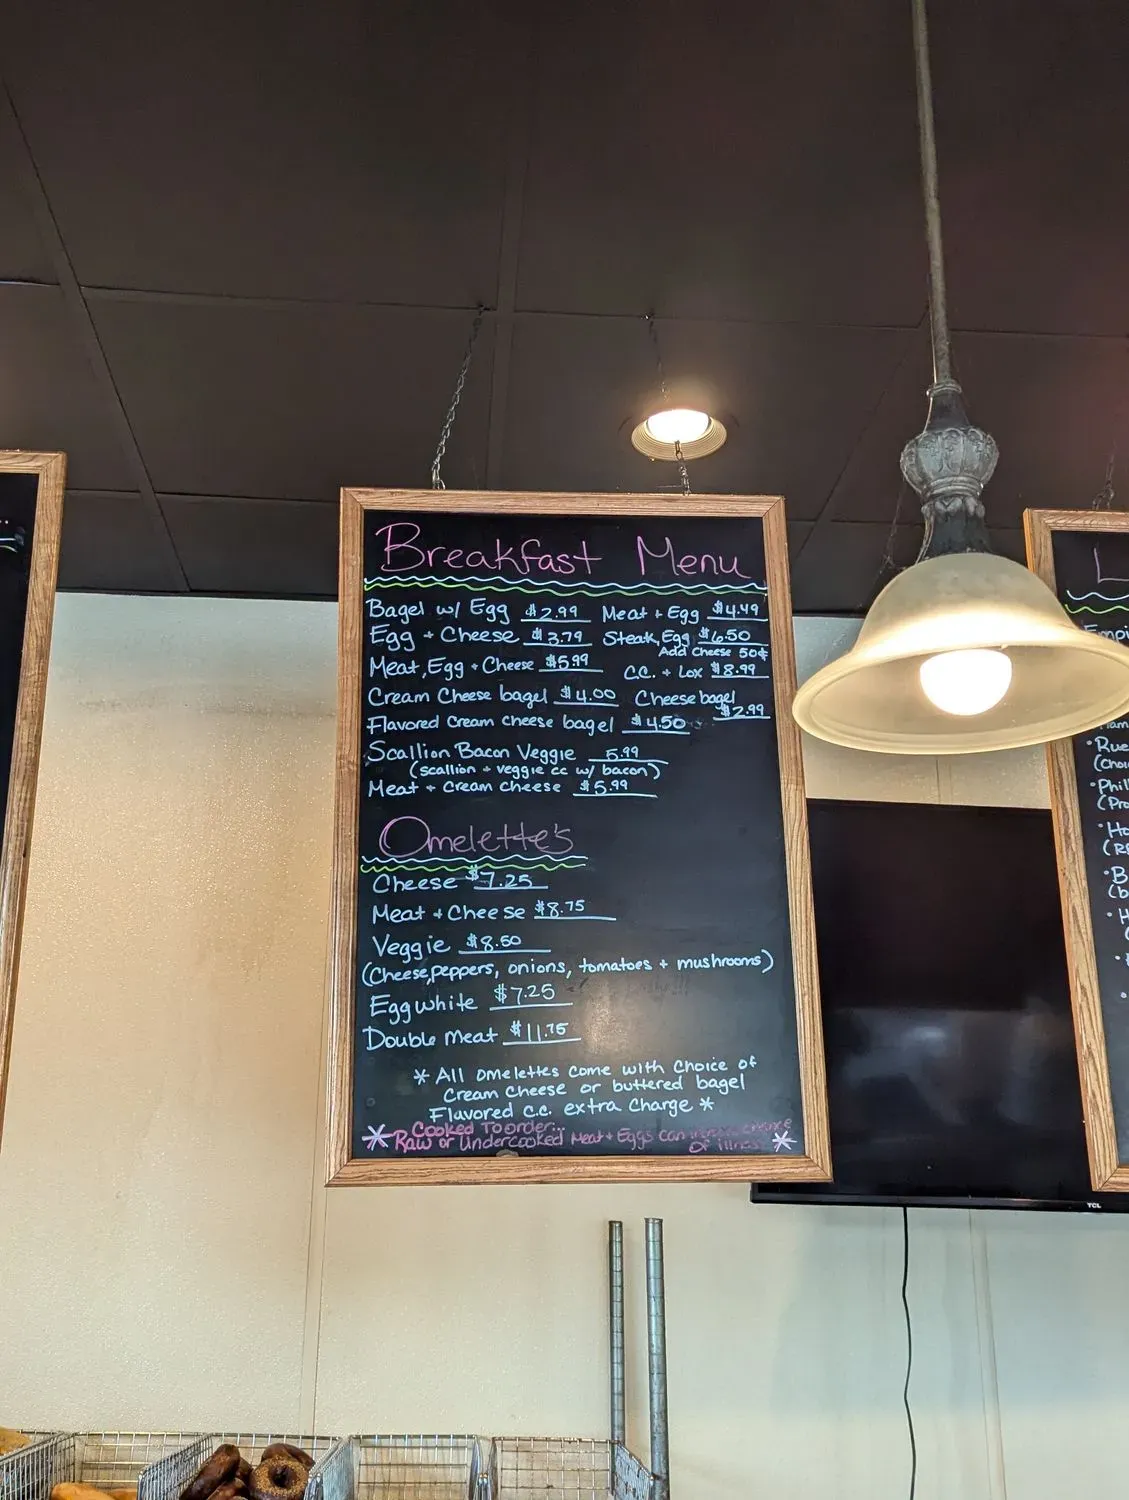 Breakfast Menu
Bagel w/ Egg $2.99 Meat + Egg $4.49
Egg + Cheese $3.79 Steak, Egg $6.50
Add Cheese 50¢
Meat, Egg + Cheese $5.99 C.C. + Lox $8.99
Cream Cheese bagel $4.00 Cheese bagel
$2.99
Flavored Cream cheese bagel $4.50
Scallion Bacon Veggie 5.99
(scallion + veggie cc w/ bacon)
Meat + Cream Cheese $5.99
Omelette's
Cheese $7.25
Meat + Cheese $8.75
Veggie $8.50
(Cheese, peppers, onions, tomatoes + mushrooms)
Egg white $7.25
Double Meat $11.75
* All omelettes come with choice of
Cream Cheese or buttered bagel
Flavored c.c. extra Charge *
Cooked To order...
* Raw or Undercooked Meat + Eggs can increase chance *
of illness
TCL